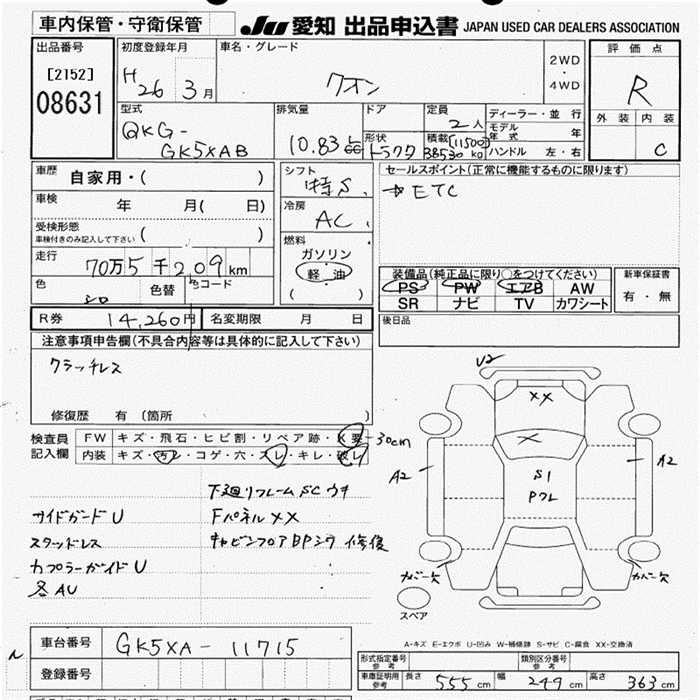 車内保管・守衛保管
JU 愛知 出品申込書 JAPAN USED CAR DEALERS ASSOCIATION
出品番号
[2152]
08631
初度登録年月
H 26 3月
車名・グレード
クオン
2WD
・
4WD
評価点
R
外装 内装
C
型式
QKG-
GK5XAB
排気量
10.83
ドア
形状
トラクタ
定員
2人
積載 [11500]
38530kg
ディーラー・並行
モデル年式 年
ハンドル 左・右
車歴
自家用・( )
車検
年 月( 日)
受検形態
車検付きのみ記入して下さい ( )
走行
70万5千209km
色
シロ
色替
色コード
シフト
冷房
AC
燃料
ガソリン
軽油
( )
セールスポイント(正常に機能するものに限ります)
ETC
装備品(純正品に限り○をつけてください)
PS PW エアB AW
SR ナビ TV カワシート
新車保証書
有・無
R券 14,260円
名変期限 月 日
後日品
注意事項申告欄(不具合内容等は具体的に記入して下さい)
クラッチレス
修復歴 有(箇所 )
検査員
記入欄
FW キズ・飛石・ヒビ割・リペア跡・X要 -30cm
内装 キズ・汚レ・コゲ・穴・スレ・キレ・破レ
下廻リフレームSCウキ
サイドガードU
FパネルXX
スタッドレス
キャビンフロアBPシワ 修復
カプラーガイドU
各AU
U2
XX
X
A2
A2
S1
Pクレ
カバー欠
カバー欠
スペア
A-キズ E-エクボ U-凹み W-補修跡 S-サビ C-腐食 XX-交換済
車台番号 GK5XA-11715
登録番号
形式指定番号
参考
類別区分番号
参考
車庫証明用
参考
長さ 555cm 幅 249cm 高さ 363cm